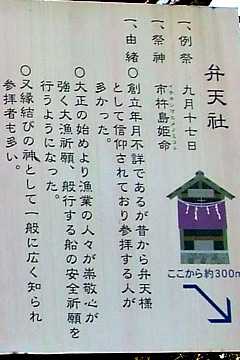 弁天社
一、例祭 九月十七日
一、祭神 市杵島姫命
イチキシマヒメノミコト
一、由緒 〇創立年月不詳であるが昔から弁天様
として信仰されており参拝する人が
多かった。
〇大正の始めより漁業の人々が崇敬心が
強く大漁祈願、般行する船の安全祈願を
行うようになった。
〇又縁結びの神として一般に広く知られ
参拝者も多い。
ここから約300m